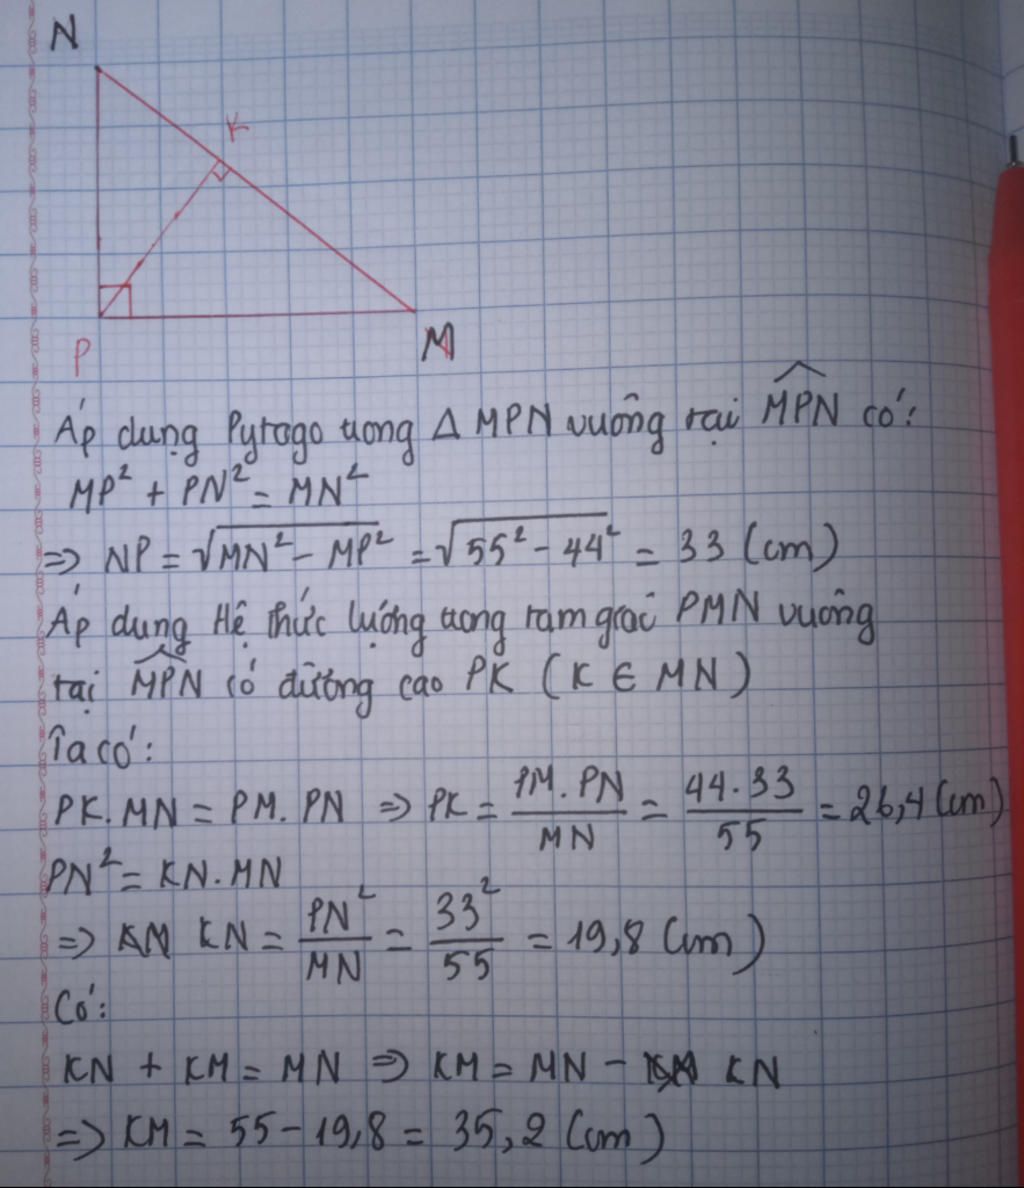 N
K
P
M
Áp dụng Pytago trong Δ MPN vuông tại \widehat{MPN} có:
MP² + PN² = MN²
=> NP = √(MN² - MP²) = √(55² - 44²) = 33 (cm)
Áp dụng Hệ thức lượng trong tam giác PMN vuông
tại \widehat{MPN} có đường cao PK (K ∈ MN)
Ta có:
PK.MN = PM.PN => PK = PM.PN/MN = 44.33/55 = 26,4 (cm)
PN² = KN.MN
=> KN = PN²/MN = 33²/55 = 19,8 (cm)
Có:
KN + KM = MN => KM = MN - KN
=> KM = 55 - 19,8 = 35,2 (cm)